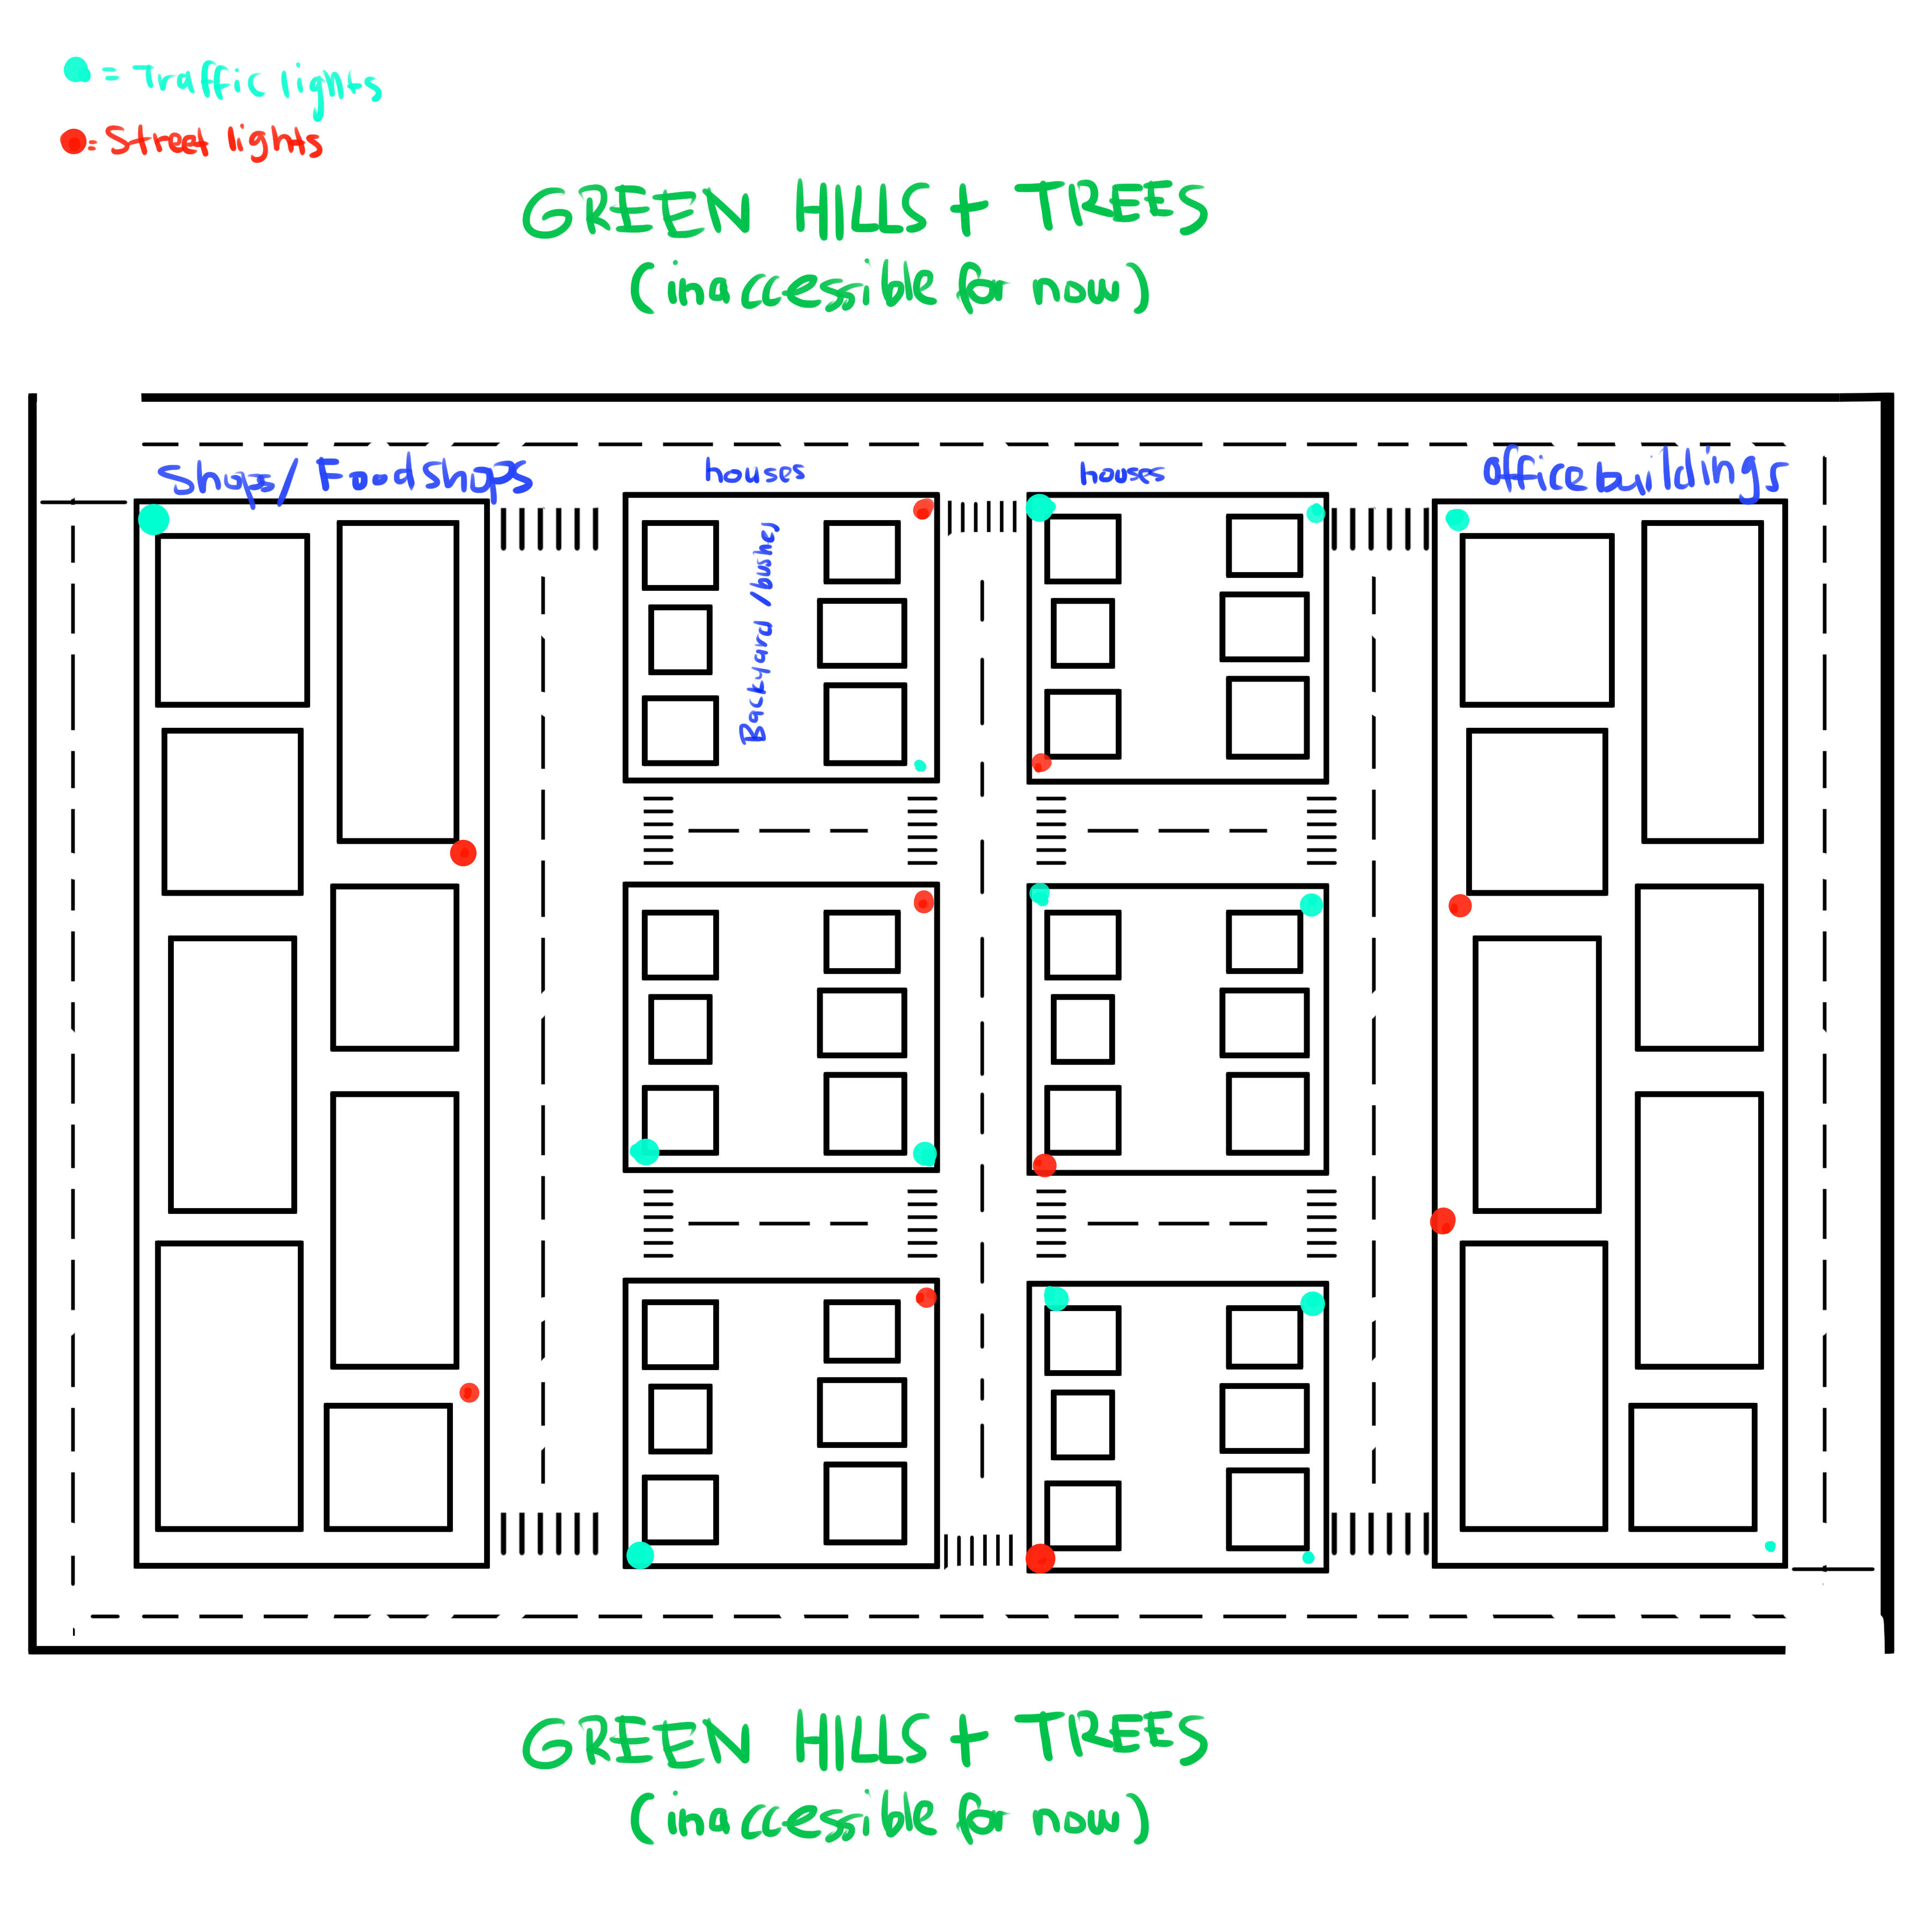 = Traffic lights
= Street lights
GREEN HILLS + TREES
(inaccessible for now)
Shops / Foodshops
houses
houses
office buildings
Backyard /bushes
GREEN HILLS + TREES
(inaccessible for now)